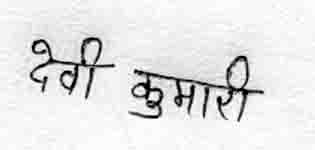 देवी कुमारी